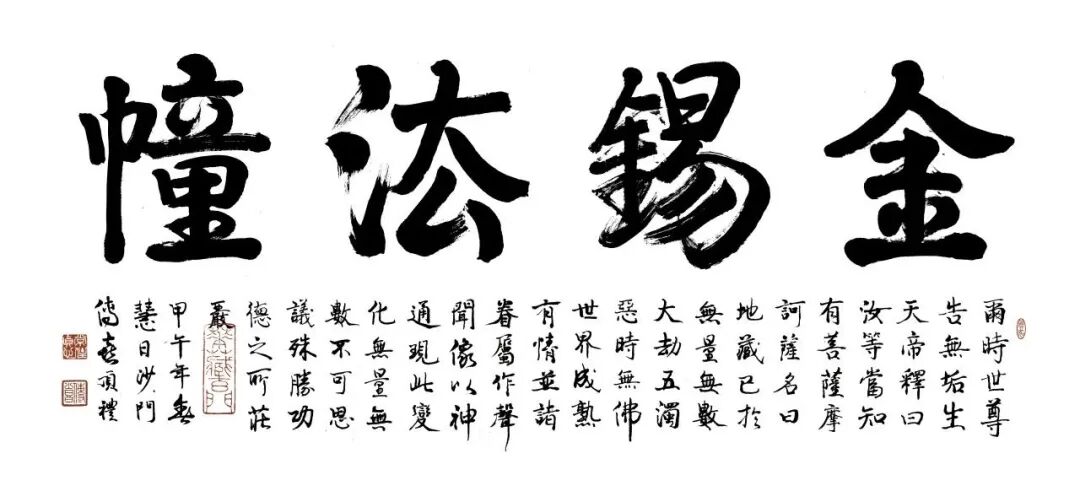 金錫法幢
爾時世尊
告無垢生
天帝釋曰
汝等當知
有菩薩摩
訶薩名曰
地藏已於
無量無數
大劫五濁
惡時無佛
世界成熟
有情並諸
眷屬作聲
聞像以神
通現此變
化無量無
數不可思
議殊勝功
德之所莊
嚴
甲午年春
慧日沙門
傳喜頂禮